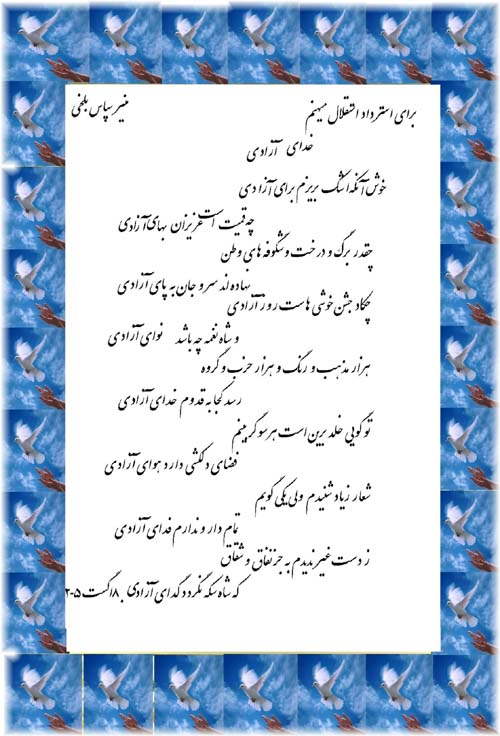 برای استرداد استقلال میهنم منیر سپاس بلخی
خدای آزادی
خوش آنکه اشک بریزم برای آزادی
چه قیمت است عزیزان بهای آزادی
چقدر برگ و درخت و شگوفه های وطن
نهاده اند سر و جان به پای آزادی
چکاد جشن خوشی هاست روز آزادی
و شاه نغمه چه باشد نوای آزادی
هزار مذهب و رنگ و هزار حزب و گروه
رسد کجا به قدوم خدای آزادی
تو گویی خلد برین است هر سو که بینم
فضای دلکشی دارد هوای آزادی
شعار زیاد شنیدم ولی یکی گویم
تمام دار و ندارم فدای آزادی
ز دست غیر ندیدم به جز نفاق و شقاق
که شاه سکه نگردد گدای آزادی ۸ اگست